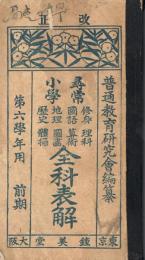 改正
普通教育研究會編纂
尋常
小學
修身 理科
國語 算術
地理 圖畫
歷史 體操
全科表解
第六學年用 前期
東京 鍾美堂 大阪